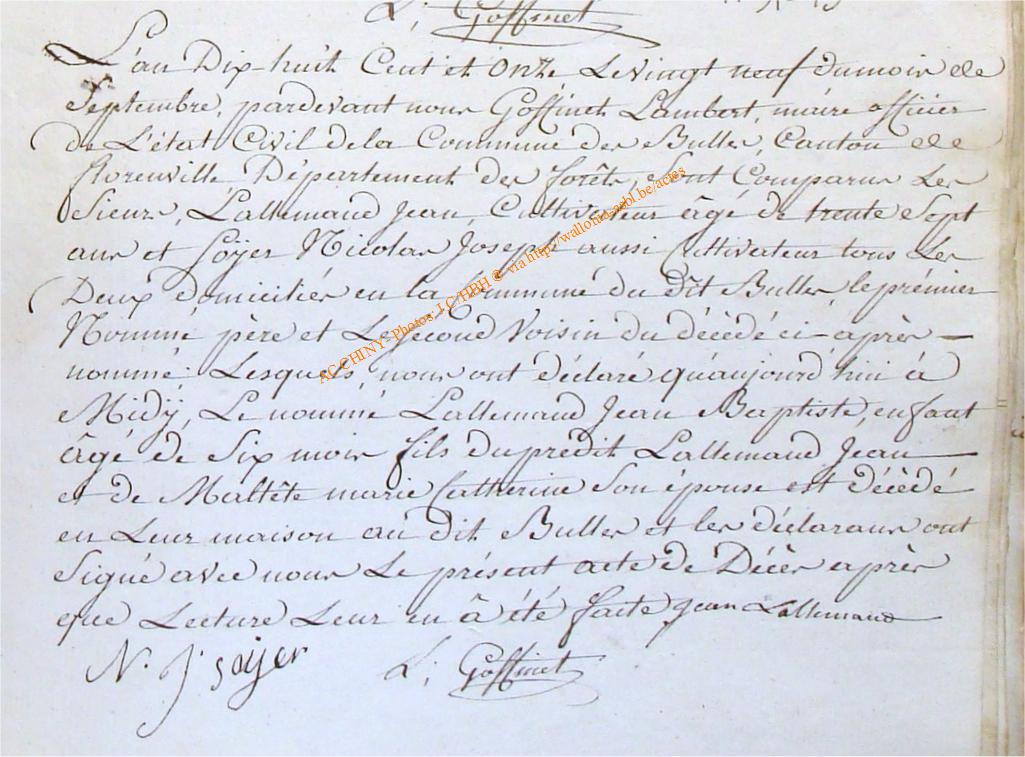 L. Goffinet
L'an Dix-huit Cent et Onze Le vingt neuf du mois de
Septembre, pardevant nous Goffinet Lambert, maire officier
de L'état Civil de la Commune des Bulles, Canton de
florenville Département des forêts, sont Comparus Les
Sieurs, Lallemand Jean, Cultivateur âgé de trente Sept
ans et Soÿer Nicolas Joseph aussi Cultivateur tous Les
Deux domiciliés en la Commune du dit Bulles, le prémier
Nommé père et Le second Voisin du décédé ci-après-
nommé. Lesquels, nous ont déclaré qu'aujourd'hui à
Midÿ, Le nommé Lallemand Jean Baptiste, enfant
âgé de Six mois fils du prédit Lallemand Jean
et de Maltête marie Catherine Son épouse est décédé
en Leur maison au dit Bulles et les déclarans ont
Signé avec nous Le présent acte de Décès après
que Lecture Leur en â été faite Jean Lallemand
N. J. soÿer L. Goffinet
AC CHINY - Photos: J.C HBH © via http://wallonia-asbl.be/actes